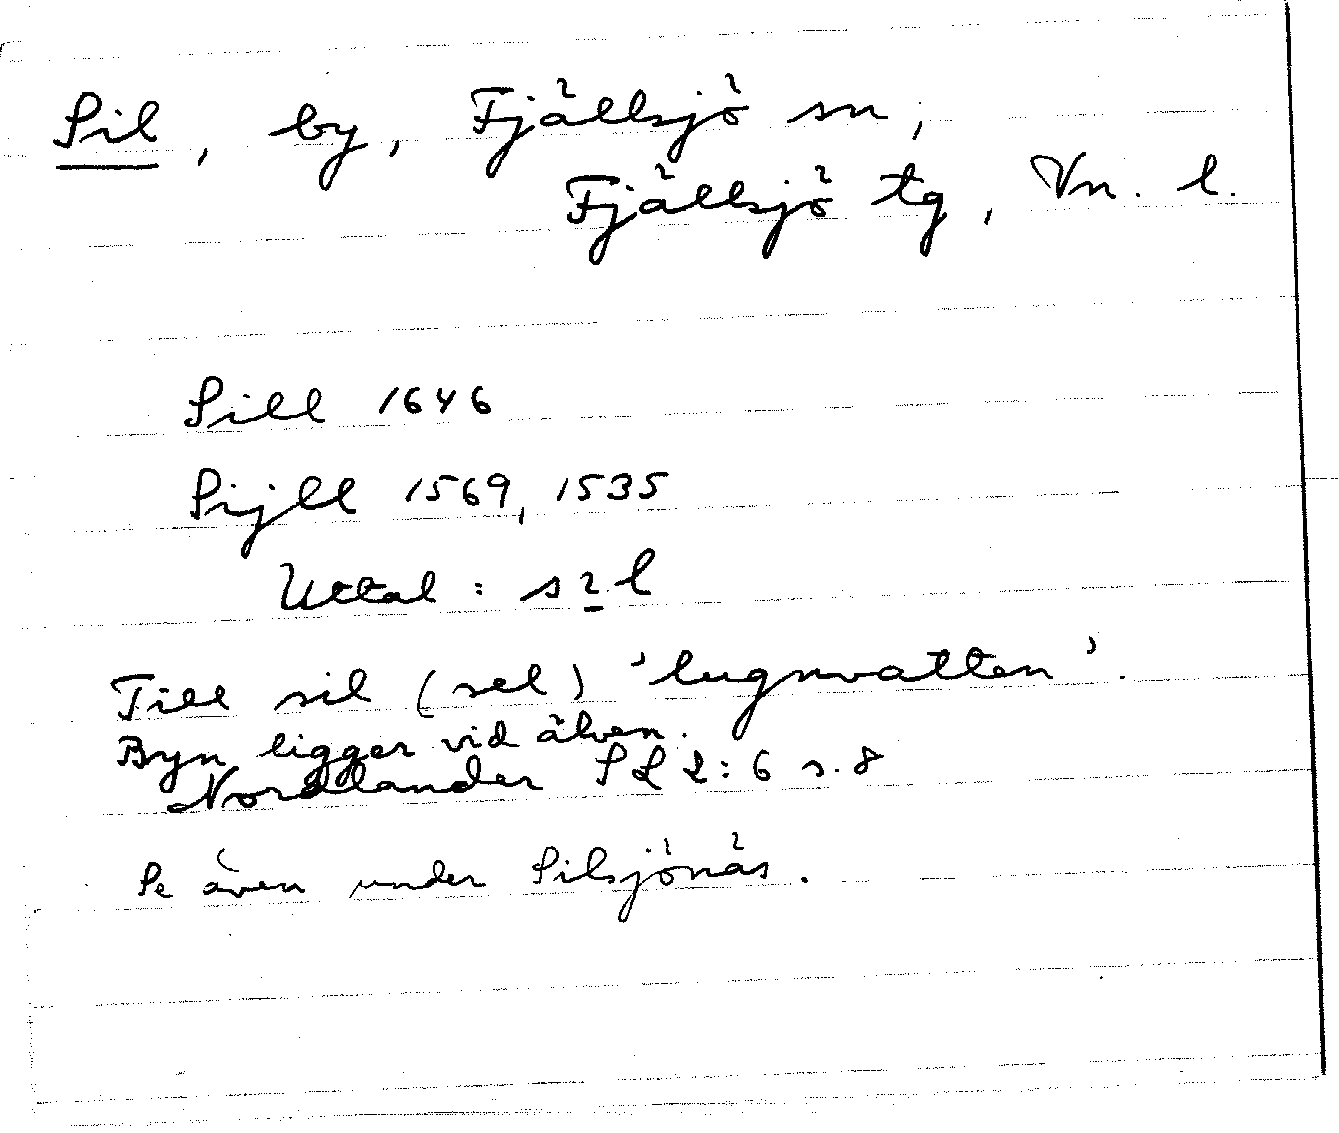 Sil, by, Fjällsjö sn,
Fjällsjö tg, Vn. l.
Sill 1646
Sijll 1569, 1535
Uttal: sɩ̠l
Till sil (sel) 'lugnvatten'.
Byn ligger vid älven.
Nordlander SL 2:6 s. 8
Se även under Silsjönäs.